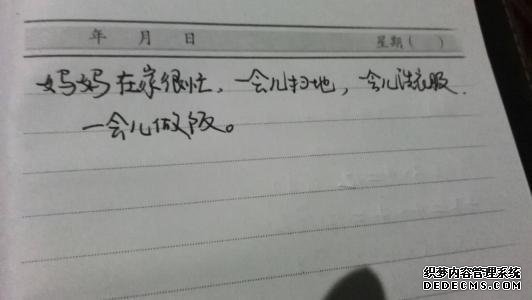 年 月 日 星期( )
妈妈在家很忙，一会儿扫地，会儿洗衣服.
一会儿做饭。
织梦内容管理系统
DEDECMS.COM